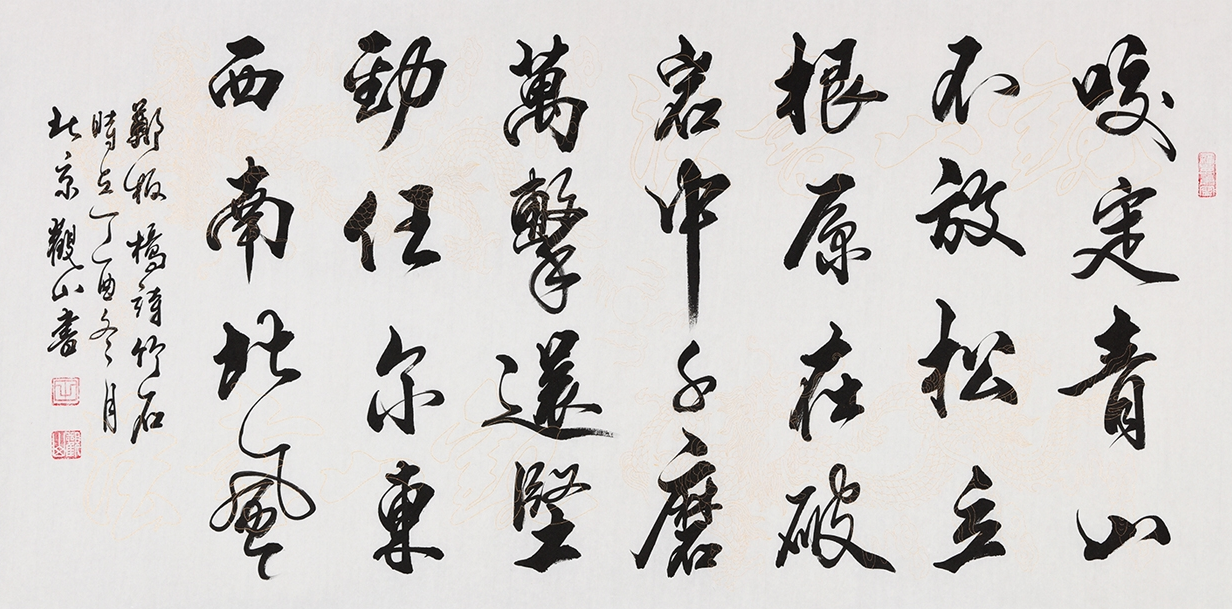 咬定青山
不放松立
根原在破
岩中千磨
萬擊還堅
勁任尔東
西南北風
鄭板橋詩竹石
時在丁酉冬月
北京觀山書